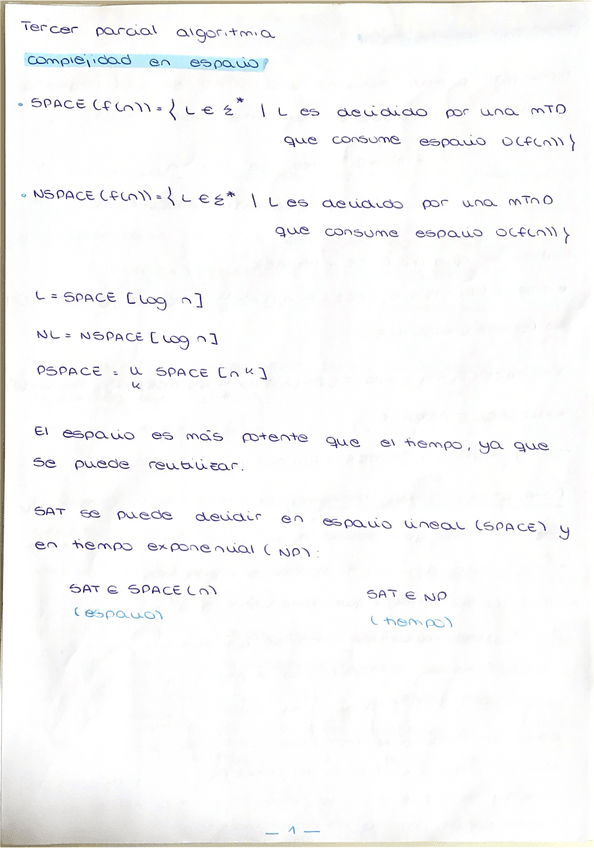 Tercer parcial algoritmia
complejidad en espacio
• SPACE (f(n)) = { L ∈ Σ* | L es decidido por una MTD
que consume espacio O(f(n)) }
• NSPACE (f(n)) = { L ∈ Σ* | L es decidido por una MTnD
que consume espacio O(f(n)) }
L = SPACE [log n]
NL = NSPACE [log n]
PSPACE = ∪ SPACE [n^k]
k
El espacio es más potente que el tiempo, ya que
se puede reutilizar.
SAT se puede decidir en espacio lineal (SPACE) y
en tiempo exponencial (NP):
SAT ∈ SPACE (n) SAT ∈ NP
(espacio) (tiempo)
— 1 —